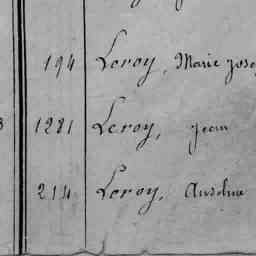 194 Leroy, Marie Jose
1281 Leroy, Jean
214 Leroy, Anselme